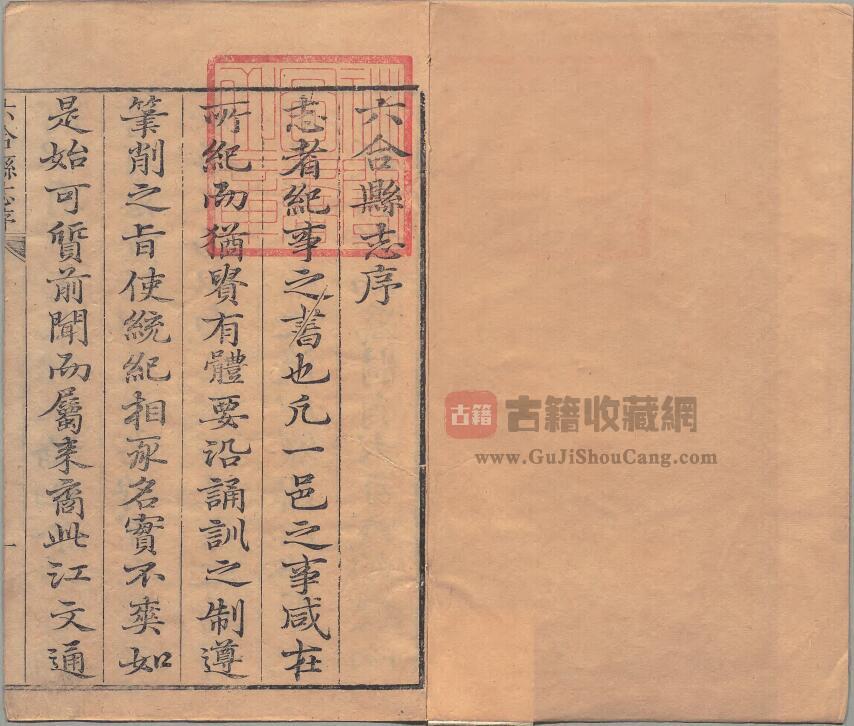 六合縣志序
志者紀事之書也凡一邑之事咸在
所紀而猶貴有體要沿誦訓之制遵
筆削之旨使統紀相承名實不爽如
是始可質前聞而屬來商此江文通
六合縣志序
一
古籍
古籍收藏網
www.GuJiShouCang.com